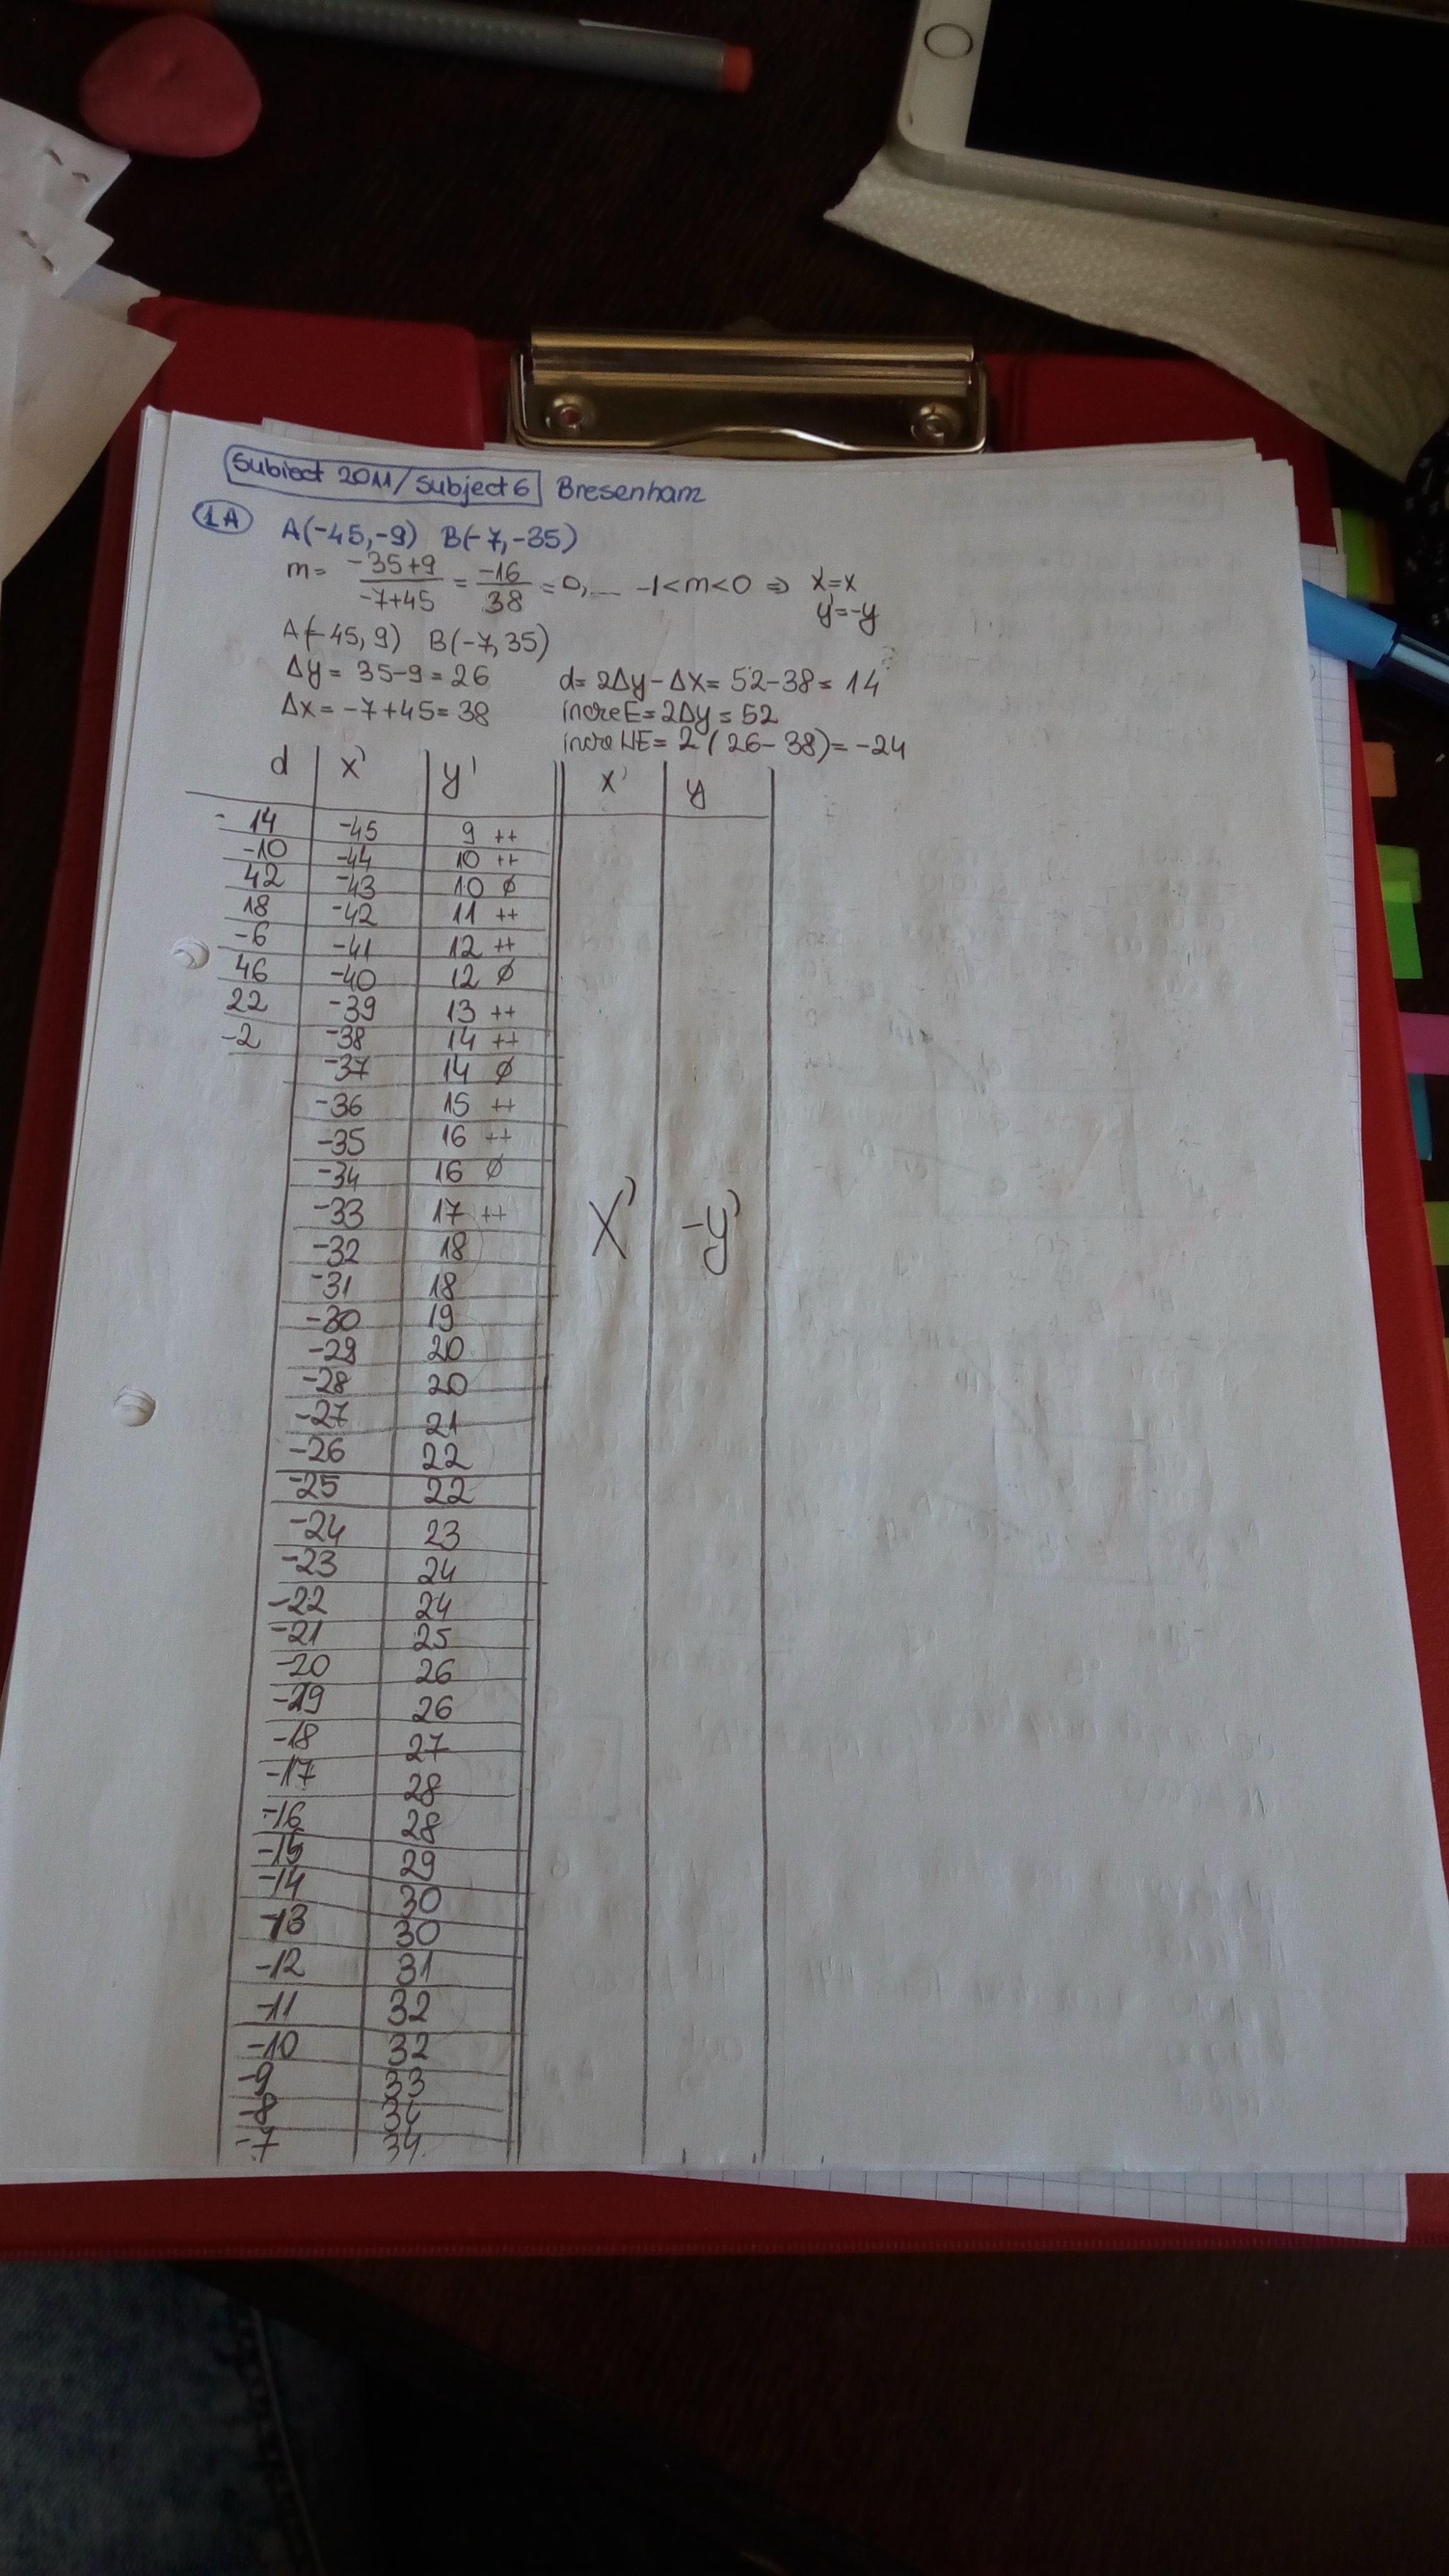 Subiect 2011/Subject 6 Bresenham
1A A(-45,-9) B(-7,-35)
m= -35+9 / -7+45 = -16 / 38 = 0,... -1<m<0 ⇒ x'=x
y'=-y
A(-45, 9) B(-7, 35)
Δy = 35-9 = 26 d= 2Δy - Δx = 52-38 = 14
Δx = -7+45 = 38 increE = 2Δy = 52
increNE = 2(26-38) = -24
d x' y' x' y
14 -45 9 ++
-10 -44 10 ++
42 -43 10 ∅
18 -42 11 ++
-6 -41 12 ++
46 -40 12 ∅
22 -39 13 ++
-2 -38 14 ++
-37 14 ∅
-36 15 ++
-35 16 ++
-34 16 ∅
-33 17 ++
x' -y'
-32 18
-31 18
-30 19
-29 20
-28 20
-27 21
-26 22
-25 22
-24 23
-23 24
-22 24
-21 25
-20 26
-19 26
-18 27
-17 28
-16 28
-15 29
-14 30
-13 30
-12 31
-11 32
-10 32
-9 33
-8 34
-7 34